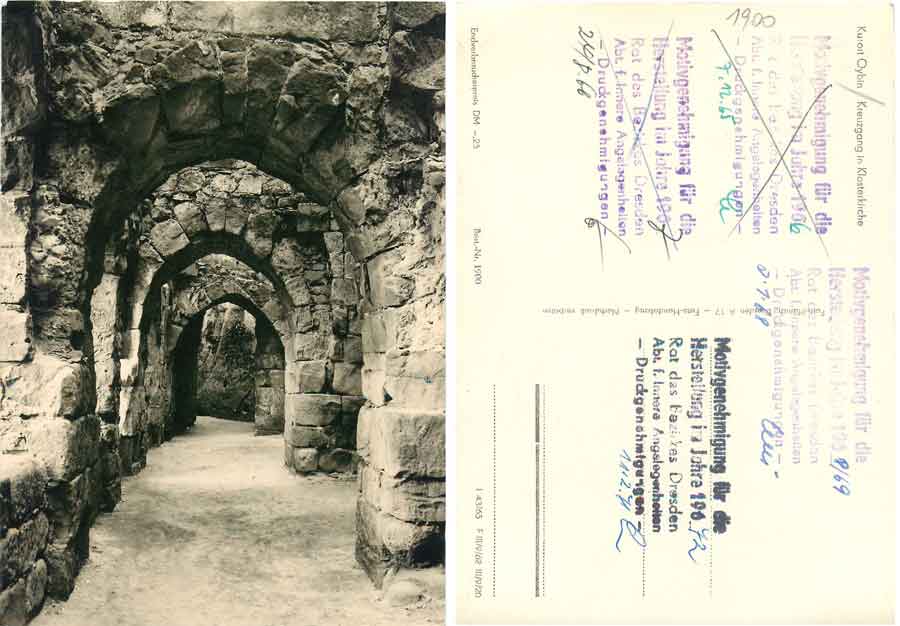 Kurort Oybin / Kreuzgang in Klosterkirche
1900
Motivgenehmigung für die
Herstellung im Jahre 1966
Rat des Bezirkes Dresden
Abt. f. Innere Angelegenheiten
– Druckgenehmigungen –
7.12.65
Motivgenehmigung für die
Herstellung im Jahre 196
Rat des Bezirkes Dresden
Abt. f. Innere Angelegenheiten
– Druckgenehmigungen –
Endverbraucherpreis DM –,25
Best.-Nr. 1900
I 43/65 F III/9/62 III/9/20
Motivgenehmigung für die
Herstellung im Jahre 196 8/69
Rat des Bezirkes Dresden
Abt. f. Innere Angelegenheiten
– Druckgenehmigungen –
A 17 – Foto-Handabzug – Nachdruck verboten
Motivgenehmigung für die
Herstellung im Jahre 196
Rat des Bezirkes Dresden
Abt. f. Innere Angelegenheiten
– Druckgenehmigungen –